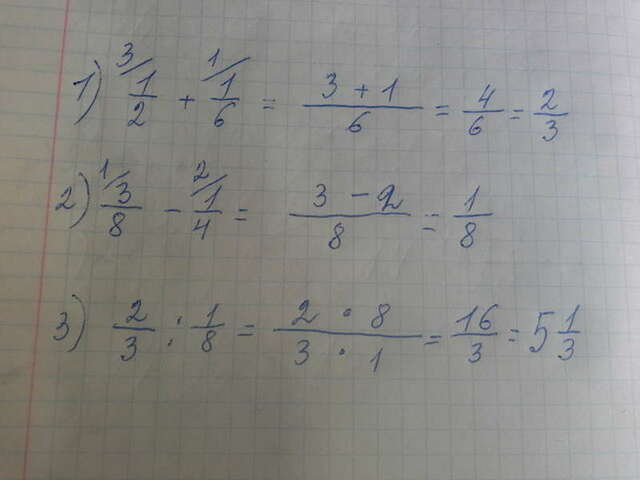 1) 3/ 1/2 + 1/ 1/6 = (3 + 1)/6 = 4/6 = 2/3
2) 1/ 3/8 - 2/ 1/4 = (3 - 2)/8 = 1/8
3) 2/3 : 1/8 = (2 · 8)/(3 · 1) = 16/3 = 5 1/3